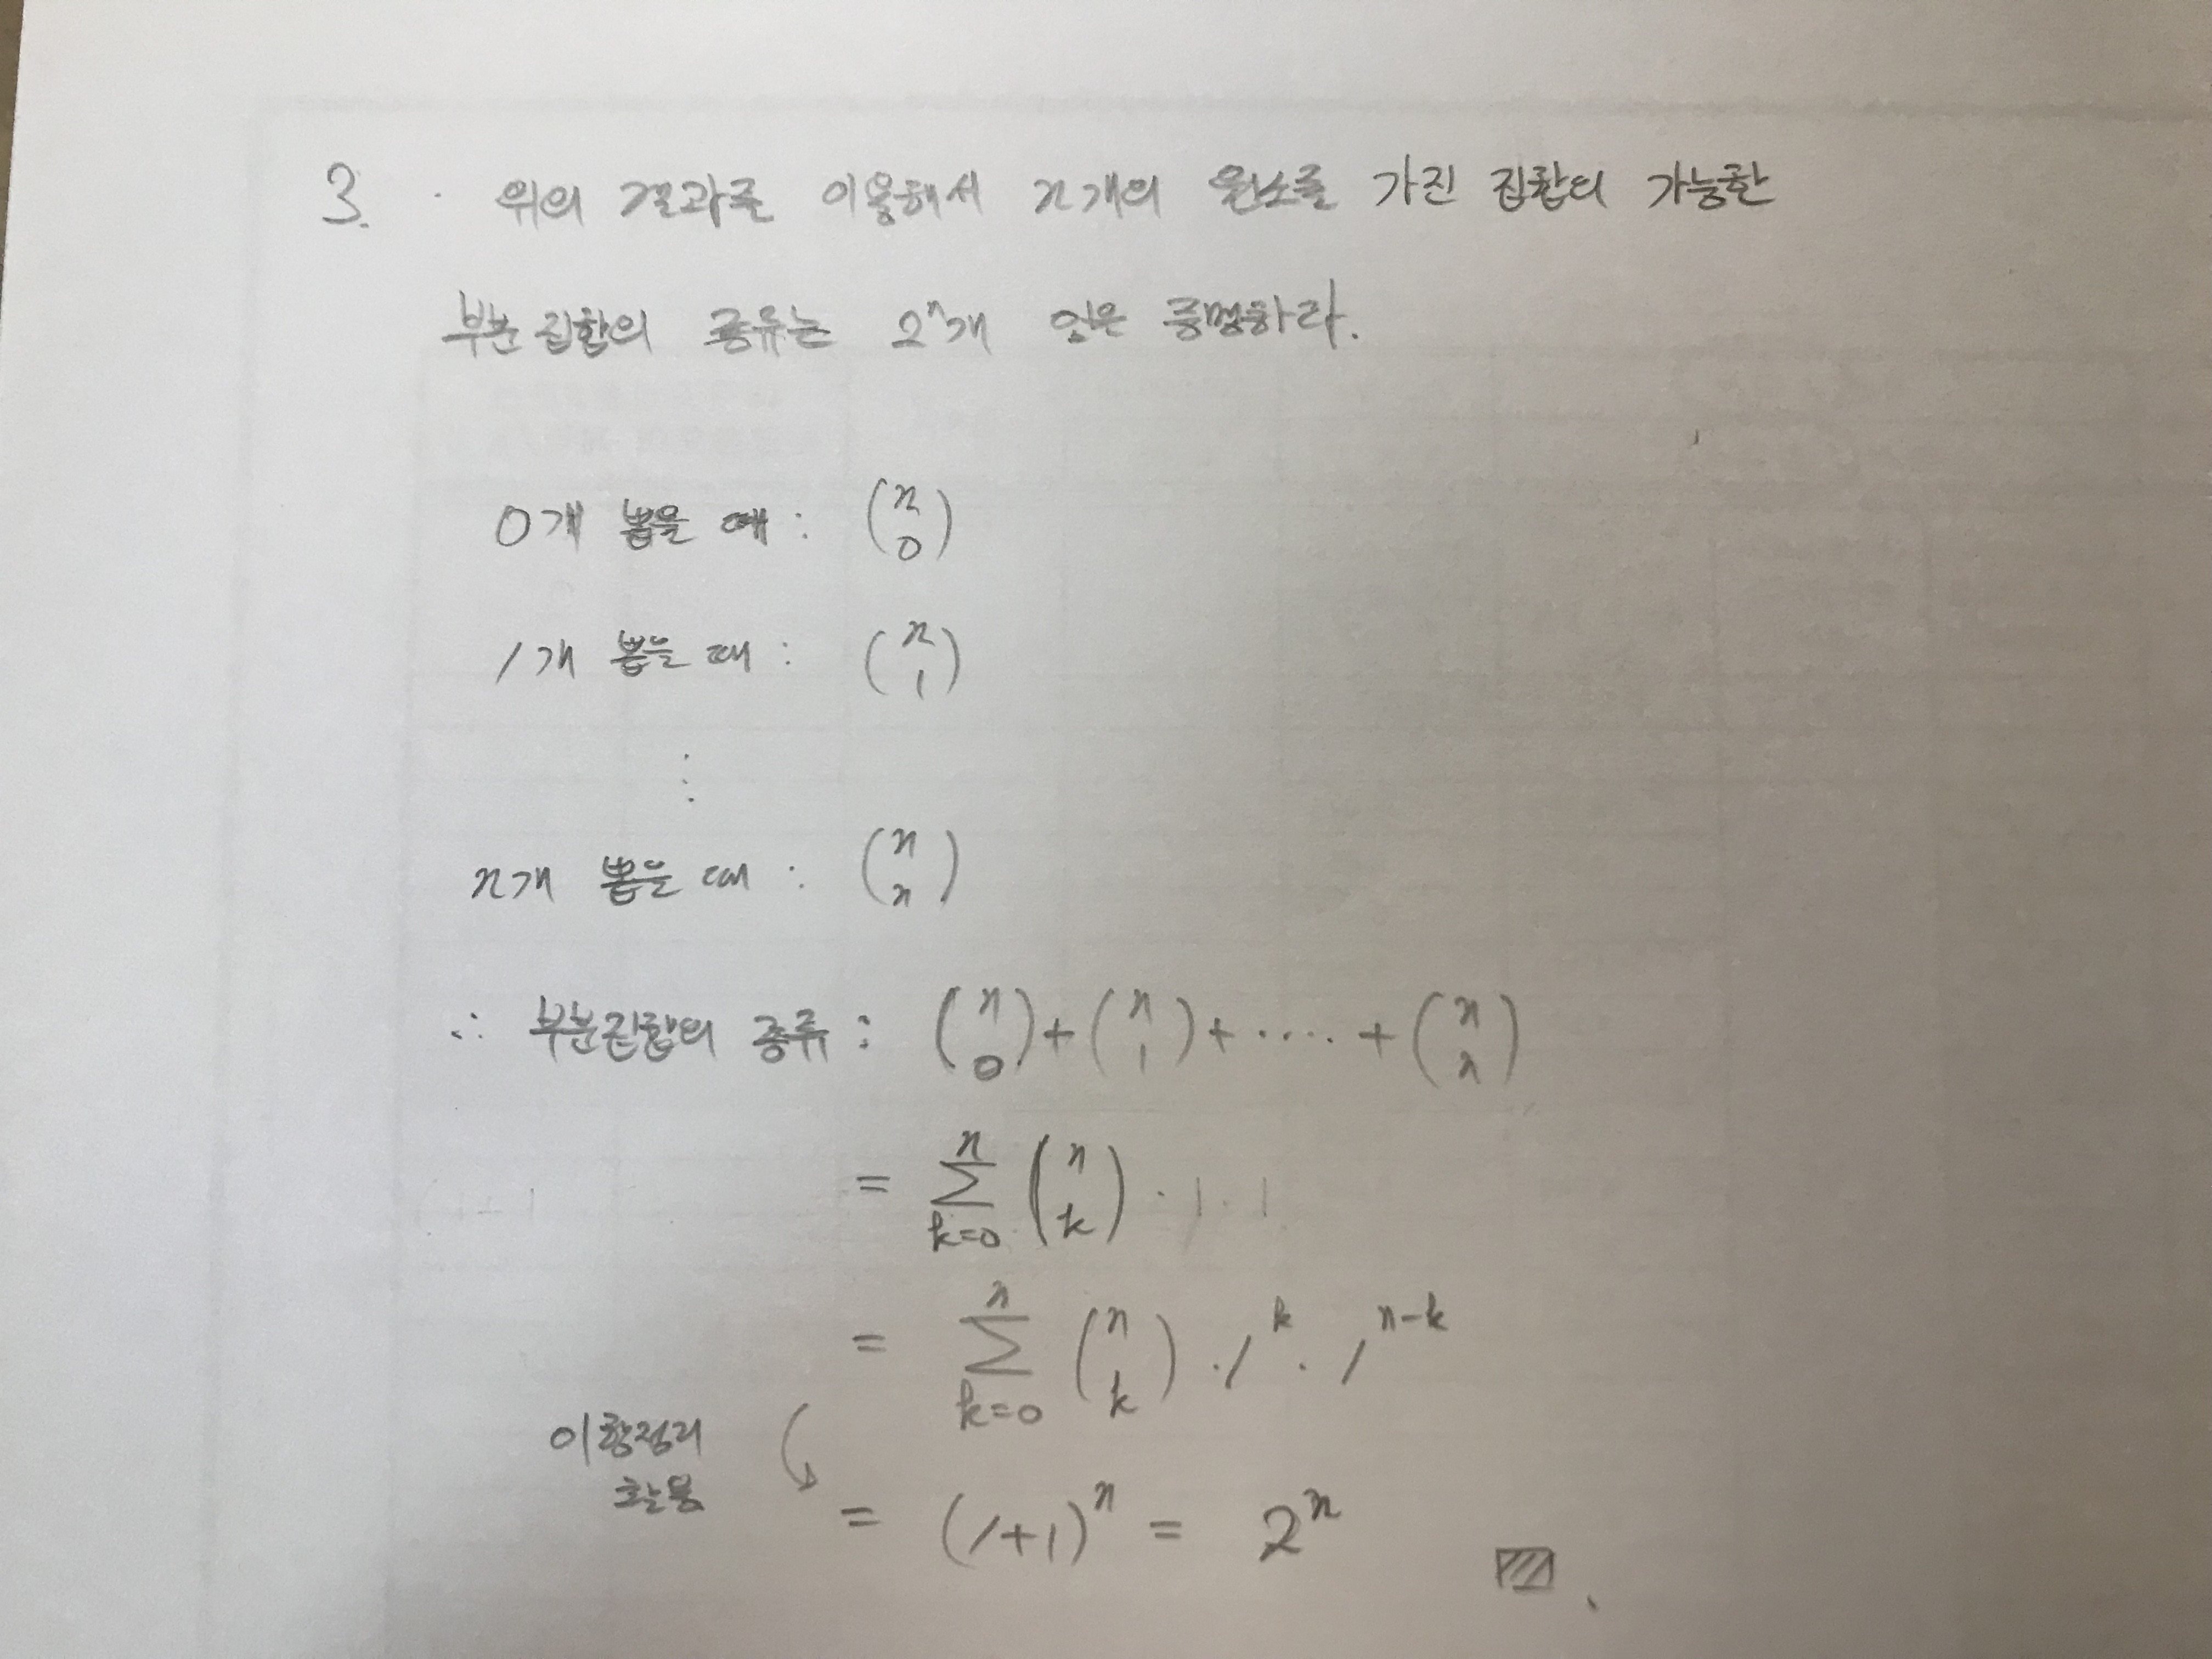 3. 위의 결과를 이용해서 n개의 원소를 가진 집합의 가능한
부분집합의 종류는 2ⁿ개 임은 증명하라.
0개 뽑을 때 : (n 0)
1개 뽑을 때 : (n 1)
⋮
n개 뽑을 때 : (n n)
∴ 부분집합의 종류 : (n 0) + (n 1) + ···· + (n n)
= Σ_{k=0}^{n} (n k) · 1 · 1
= Σ_{k=0}^{n} (n k) · 1^k · 1^{n-k}
이항정리
활용
= (1+1)ⁿ = 2ⁿ